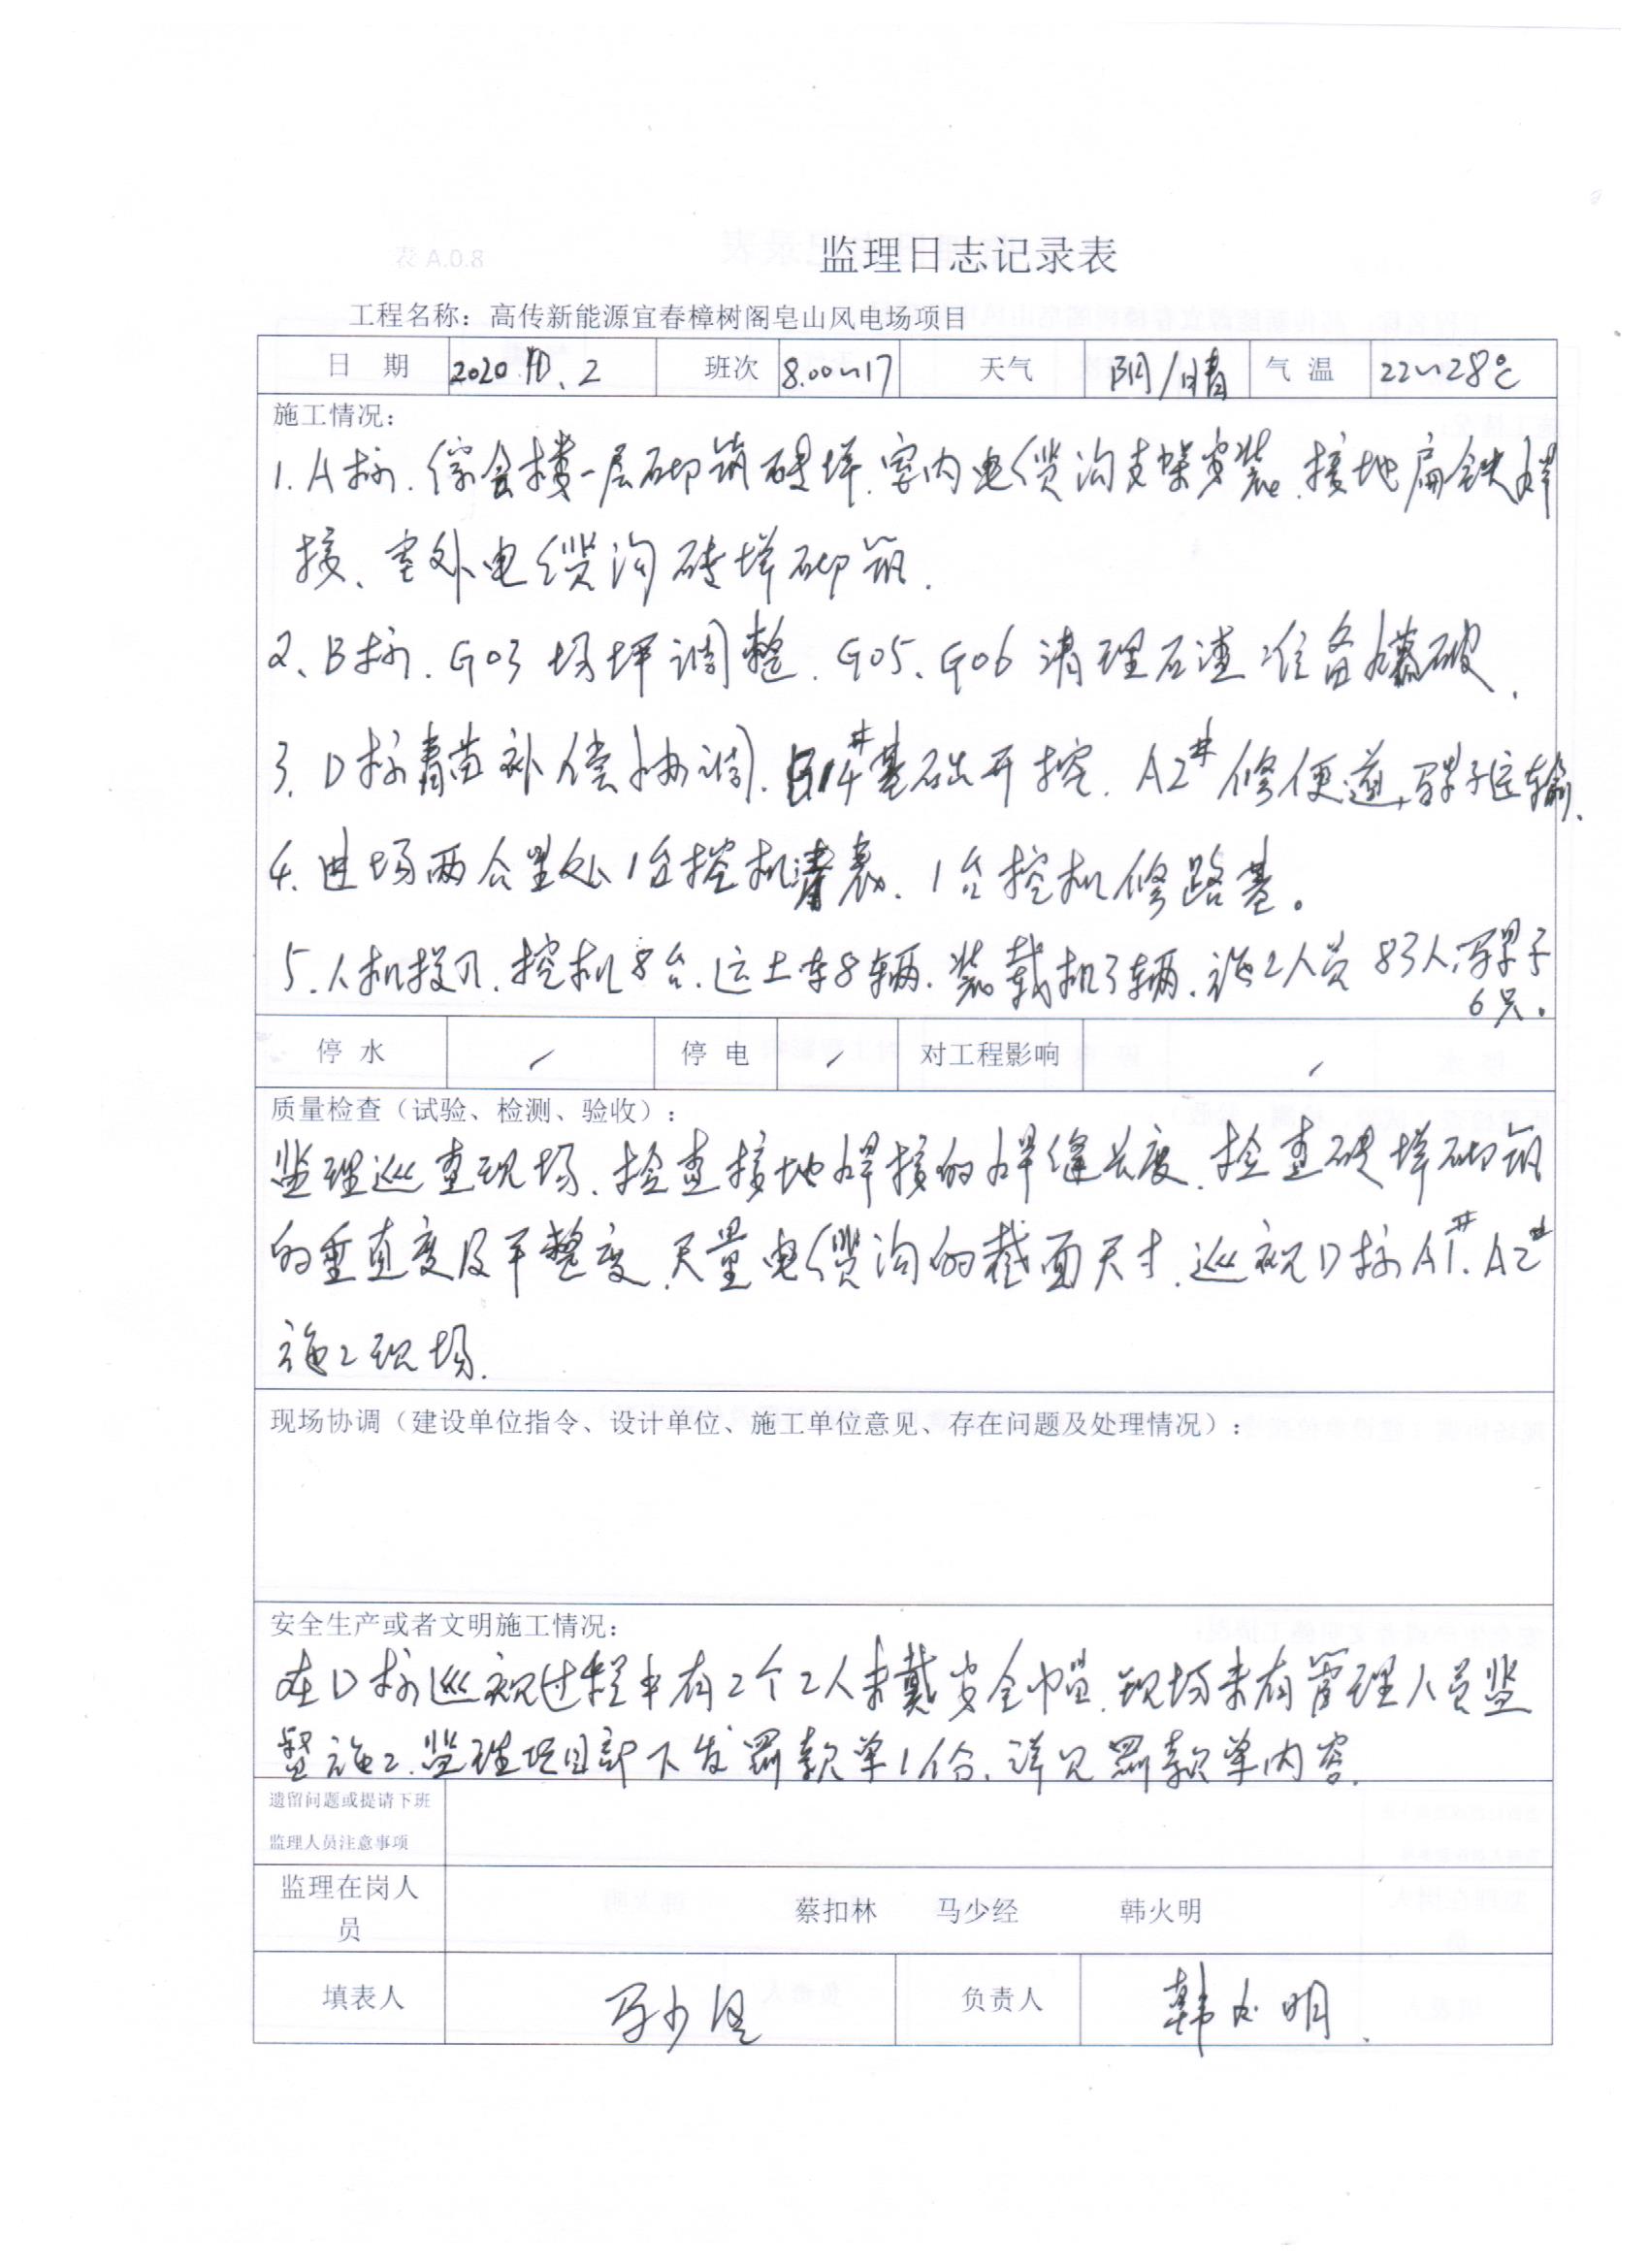 监理日志记录表
工程名称：高传新能源宜春樟树阁皂山风电场项目
日 期 2020.10、2 班次 8.00~17 天气 阴/晴 气 温 22~28℃
施工情况：
1. A标. 综合楼一层砌筑砖墙. 室内电缆沟支架安装. 接地扁铁焊
接、室外电缆沟砖墙砌筑.
2、B标. G03 场坪调整. G05、G06 清理石渣准备爆破.
3. D标青苗补偿协调. 14#基础开挖. A2#修便道, 骡子运输.
4. 进场两公里处1台挖机清表. 1台挖机修路基。
5. 人机投入. 挖机8台. 运土车8辆. 装载机3辆. 施工人员 83人, 骡子
6只.
停 水 / 停 电 / 对工程影响 /
质量检查（试验、检测、验收）：
监理巡查现场. 检查接地焊接的焊缝长度. 检查砖墙砌筑
的垂直度及平整度. 尺量电缆沟的截面尺寸. 巡视D标A1#. A2#
施工现场.
现场协调（建设单位指令、设计单位、施工单位意见、存在问题及处理情况）：
安全生产或者文明施工情况：
在D标巡视过程中有2个工人未戴安全帽. 现场未有管理人员监
督施工. 监理项目部下发罚款单1份. 详见罚款单内容.
遗留问题或提请下班
监理人员注意事项
监理在岗人
员 蔡扣林 马少经 韩火明
填表人 马少经 负责人 韩火明